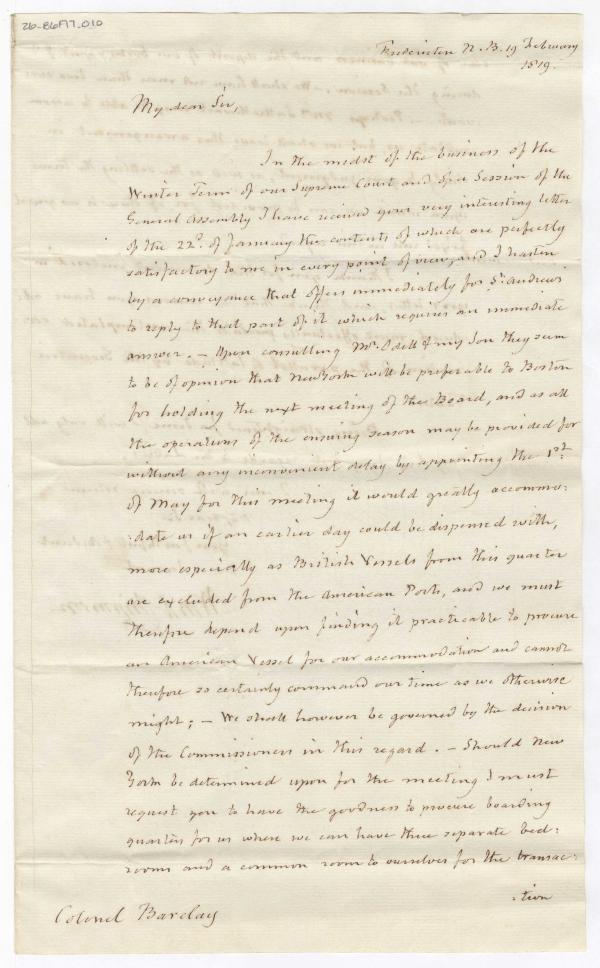 26-86F17_010
Fredericton N. B. 19 February
1819.
My dear Sir,
In the midst of the business of the
Winter Term of our Supreme Court and of a Session of the
General Assembly I have received your very interesting letter
of the 22d. of January the contents of which are perfectly
satisfactory to me in every point of view, and I hasten
by a conveyance that offers immediately for St. Andrews
to reply to that part of it which requires an immediate
answer. – Upon consulting Mr. Odell & my Son they seem
to be of opinion that New York will be preferable to Boston
for holding the next meeting of the Board, and as all
the operations of the ensuing season may be provided for
without any inconvenient delay by appointing the 1st.
of May for this meeting it would greatly accommo:
:date us if an earlier day could be dispensed with,
more especially as British Vessels from this quarter
are excluded from the American Ports, and we must
therefore depend upon finding it practicable to procure
an American Vessel for our accommodation and cannot
therefore so certainly command our time as we otherwise
might; – We shall however be governed by the decision
of the Commissioners in this regard. – Should New
York be determined upon for the meeting I must
request you to have the goodness to procure boarding
quarters for us where we can have three separate bed:
rooms and a common room to ourselves for the transac:
:tion
Colonel Barclay